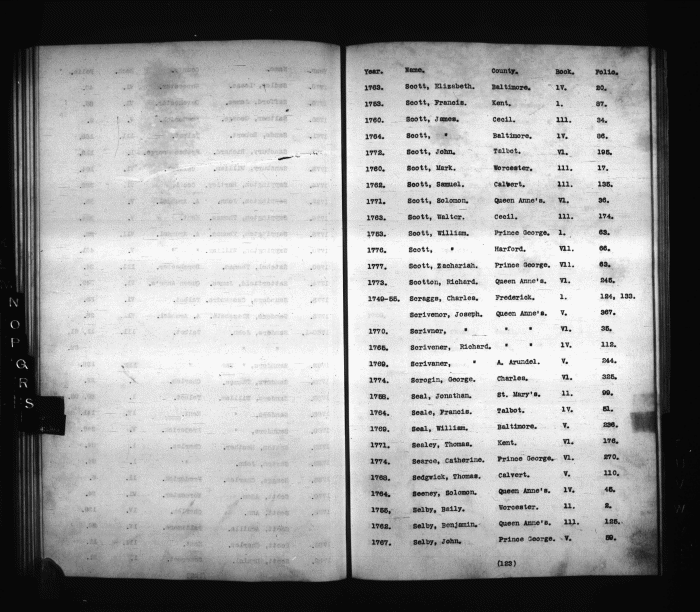 Year. Name. County. Book. Folio.
1763. Scott, Elizabeth. Baltimore. 1V. 20.
1753. Scott, Francis. Kent. 1. 87.
1760. Scott, James. Cecil. 111. 34.
1764. Scott, " Baltimore. 1V. 86.
1772. Scott, John. Talbot. V1. 195.
1760. Scott, Mark. Worcester. 111. 17.
1762. Scott, Samuel. Calvert. 111. 135.
1771. Scott, Solomon. Queen Anne's. V1. 36.
1763. Scott, Walter. Cecil. 111. 174.
1753. Scott, William. Prince George. 1. 63.
1776. Scott, " Harford. V11. 66.
1777. Scott, Zachariah. Prince George. V11. 63.
1773. Scotton, Richard. Queen Anne's. V1. 245.
1749-55. Scraggs, Charles. Frederick. 1. 124, 133.
Scrivenor, Joseph. Queen Anne's. V. 367.
1770. Scrivner, " " " V1. 35.
1765. Scrivener, Richard. " " 1V. 112.
1769. Scrivaner, " A. Arundel. V. 244.
1774. Scrogin, George. Charles. V1. 325.
1758. Seal, Jonathan. St. Mary's. 11. 99.
1764. Seale, Francis. Talbot. 1V. 51.
1769. Seal, William. Baltimore. V. 236.
1771. Sealey, Thomas. Kent. V1. 176.
1774. Searce, Catherine. Prince George. V1. 270.
1768. Sedgwick, Thomas. Calvert. V. 110.
1764. Seeney, Solomon. Queen Anne's. 1V. 45.
1755. Selby, Baily. Worcester. 11. 2.
1762. Selby, Benjamin. Queen Anne's. 111. 125.
1767. Selby, John. Prince George. V. 59.
(123)
N
O
P
Q
R
S